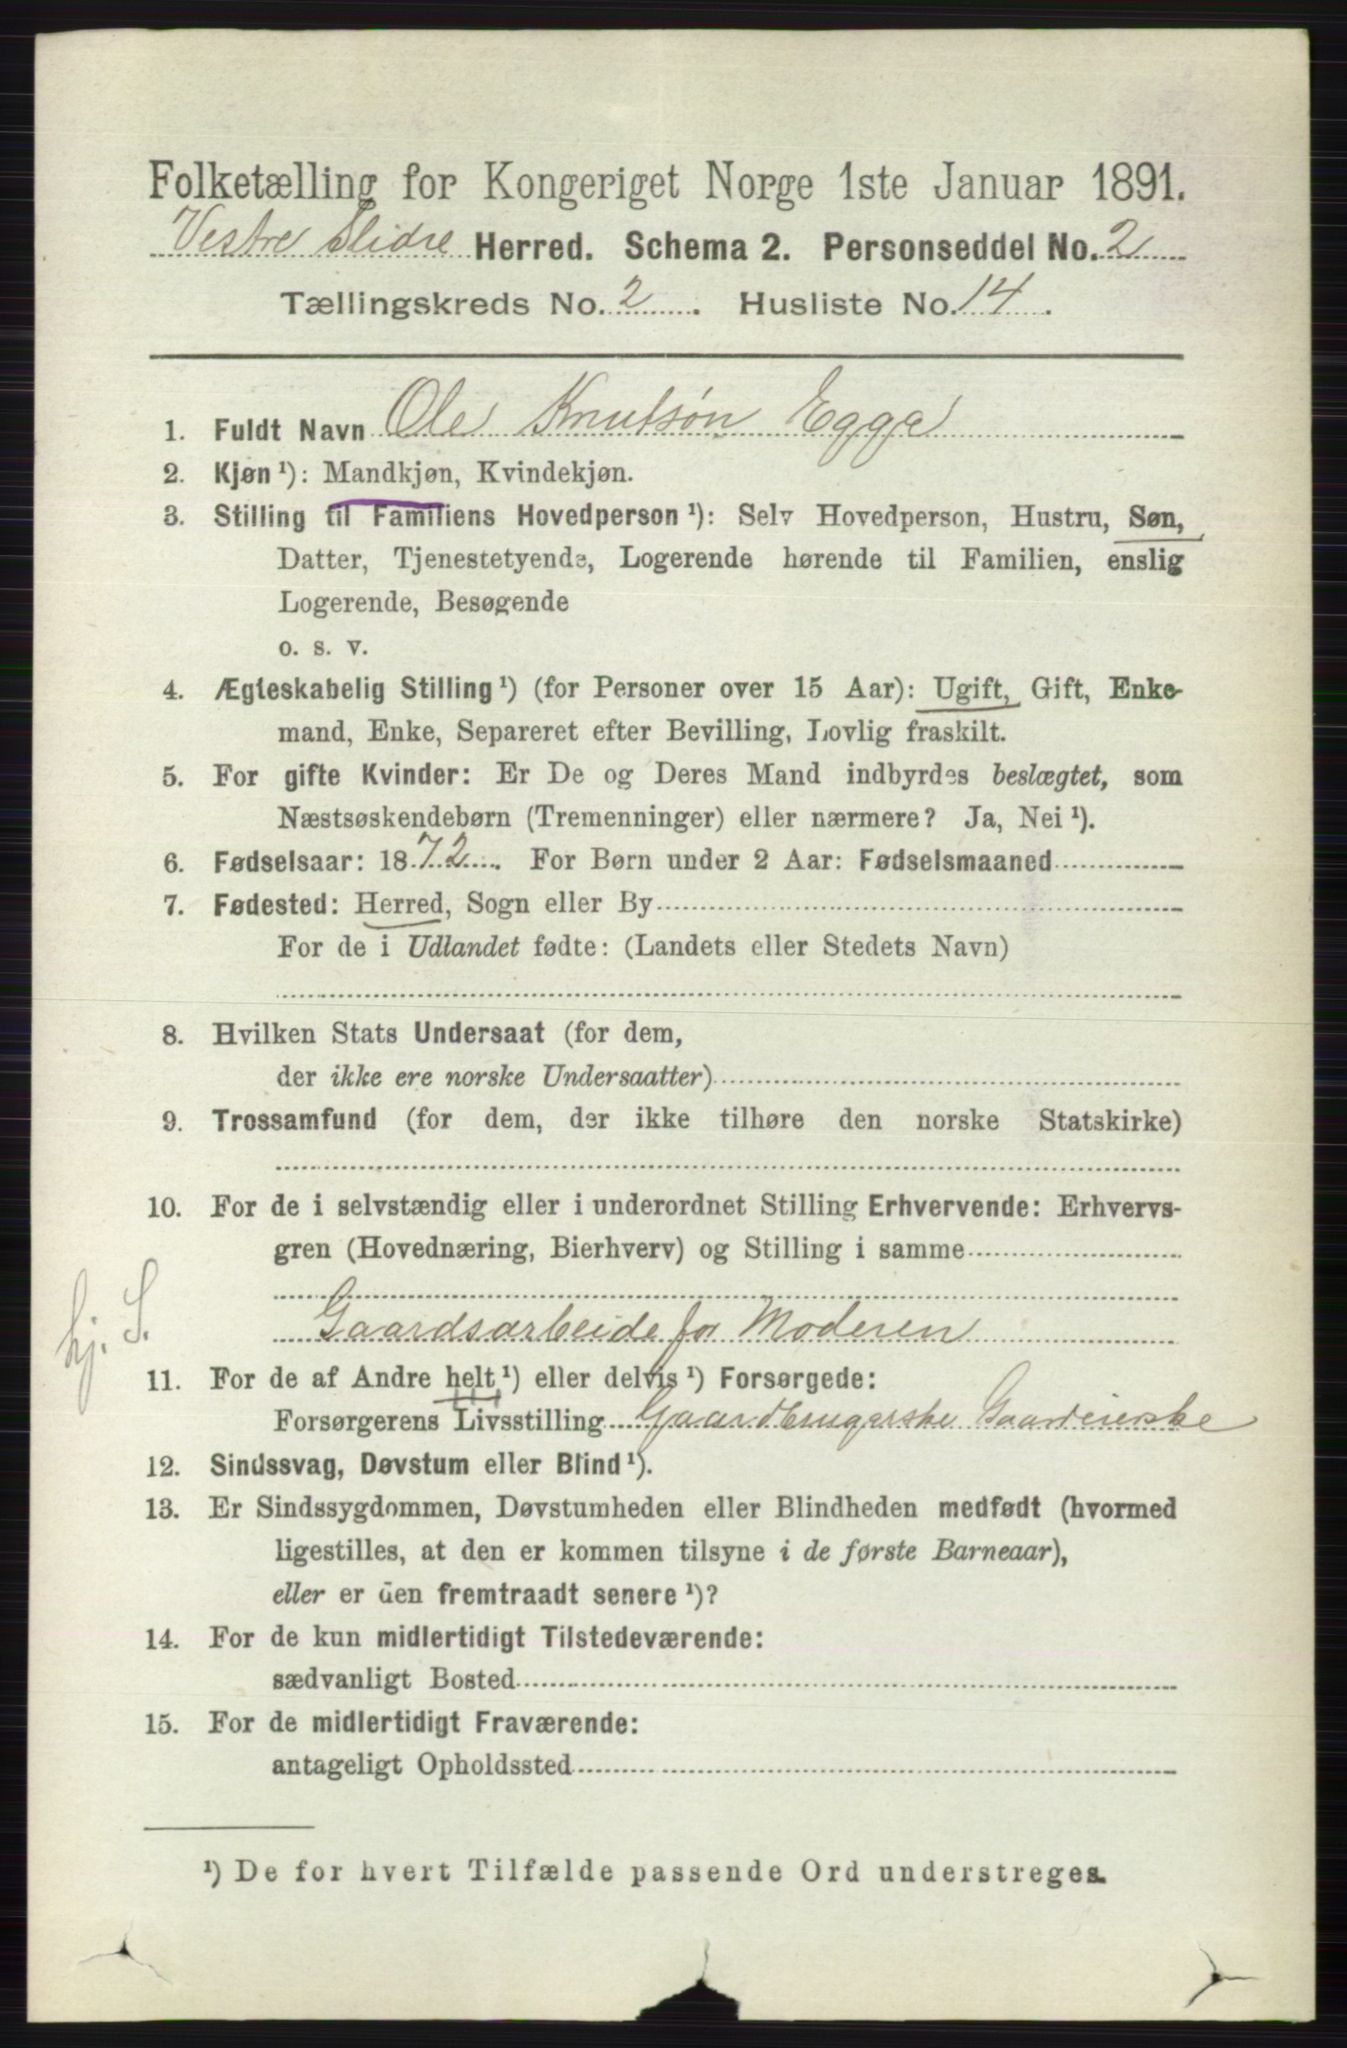 Folketælling for Kongeriget Norge 1ste Januar 1891.
Vestre Slidre Herred. Schema 2. Personseddel No. 2
Tællingskreds No. 2. Husliste No. 14.
1. Fuldt Navn Ole Knutsøn Egga
2. Kjøn ¹): Mandkjøn, Kvindekjøn.
3. Stilling til Familiens Hovedperson ¹): Selv Hovedperson, Hustru, Søn,
Datter, Tjenestetyende, Logerende hørende til Familien, enslig
Logerende, Besøgende
o. s. v.
4. Ægteskabelig Stilling ¹) (for Personer over 15 Aar): Ugift, Gift, Enke-
mand, Enke, Separeret efter Bevilling, Lovlig fraskilt.
5. For gifte Kvinder: Er De og Deres Mand indbyrdes beslægtet, som
Næstsøskendebørn (Tremenninger) eller nærmere? Ja, Nei ¹).
6. Fødselsaar: 1872. For Børn under 2 Aar: Fødselsmaaned
7. Fødested: Herred, Sogn eller By
For de i Udlandet fødte: (Landets eller Stedets Navn)
8. Hvilken Stats Undersaat (for dem,
der ikke ere norske Undersaatter)
9. Trossamfund (for dem, der ikke tilhøre den norske Statskirke)
10. For de i selvstændig eller i underordnet Stilling Erhvervende: Erhvervs-
gren (Hovednæring, Bierhverv) og Stilling i samme
hj. S.
Gaardsarbeide for Moderen
11. For de af Andre helt ¹) eller delvis ¹) Forsørgede:
Forsørgerens Livsstilling Gaardbrugerske Gaardeierske
12. Sindssvag, Døvstum eller Blind ¹).
13. Er Sindssygdommen, Døvstumheden eller Blindheden medfødt (hvormed
ligestilles, at den er kommen tilsyne i de første Barneaar),
eller er den fremtraadt senere ¹)?
14. For de kun midlertidigt Tilstedeværende:
sædvanligt Bosted
15. For de midlertidigt Fraværende:
antageligt Opholdssted
¹) De for hvert Tilfælde passende Ord understreges.